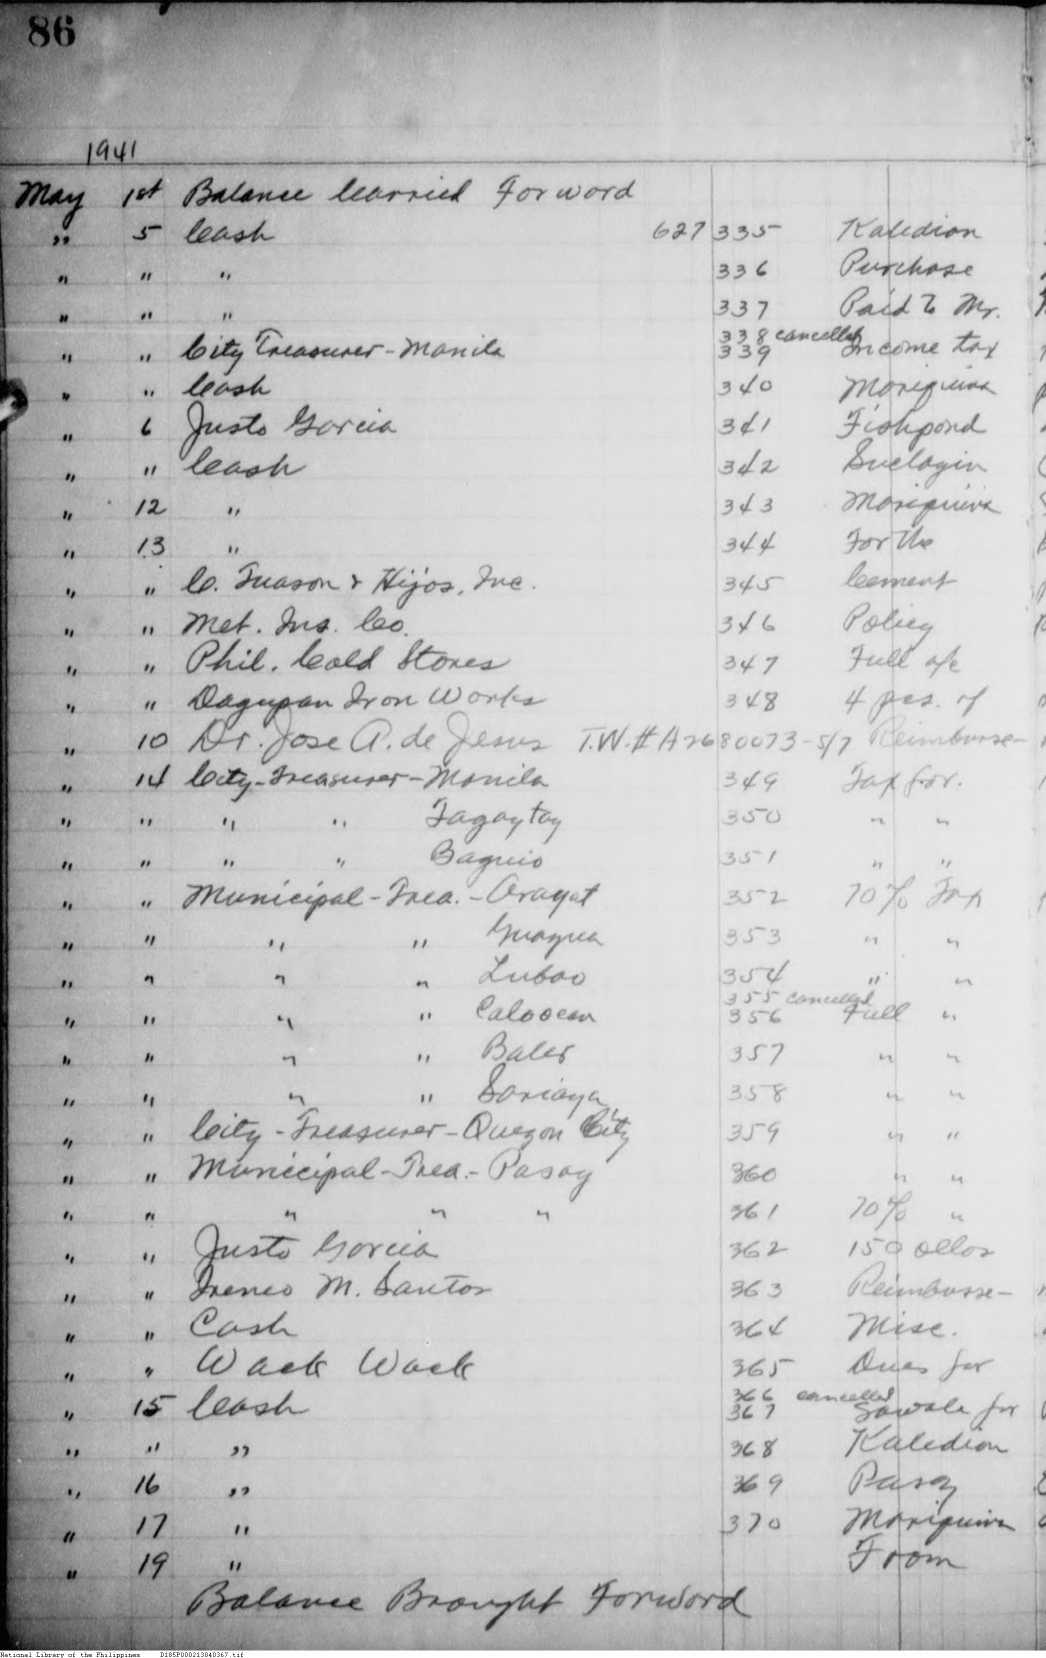 86
1941
May 1st Balance Carried Forword
" 5 Cash 627 335 Kaledian
" " " 336 Purchase
" " " 337 Paid to Mr.
338 cancelled
" " City Treasurer - Manila 339 Income tax
" " Cash 340 Moriquina
" 6 Justo Garcia 341 Fishpond
" " Cash 342
" 12 " 343 Moriquina
" 13 " 344 For the
" " C. Tuason & Hijos, Inc. 345 Cement
" " Met. Ins. Co. 346 Policy
" " Phil. Cold Stores 347 Full a/c
" " Dagupan Iron Works 348 4 pcs. of
" 10 Dr. Jose A. de Jesus T.W.# A2680073-5/7 Reimburse-
" 14 City-Treasurer-Manila 349 Tax for.
" " " " Tagaytay 350 " "
" " " " Baguio 351 " "
" " Municipal-Trea.-Arayat 352 70% Tax
" " " " Guagua 353 " "
" " " " Lubao 354 " "
355 cancelled
" " " " Caloocan 356 Full "
" " " " Baler 357 " "
" " " " Sariaya 358 " "
" " City-Treasurer-Quezon City 359 " "
" " Municipal-Trea.-Pasay 360 " "
" " " " " 361 70% "
" " Justo Garcia 362 150 ollos
" " Ireneo M. Santos 363 Reimburse-
" " Cash 364 Misc.
" " Wack Wack 365 Dues for
366 cancelled
" 15 Cash 367 Sawale for
" " " 368 Kaledian
" 16 " 369 Pasay
" 17 " 370 Moriquina
" 19 " From
Balance Brought Forword
National Library of the Philippines D185P000213840367.tif